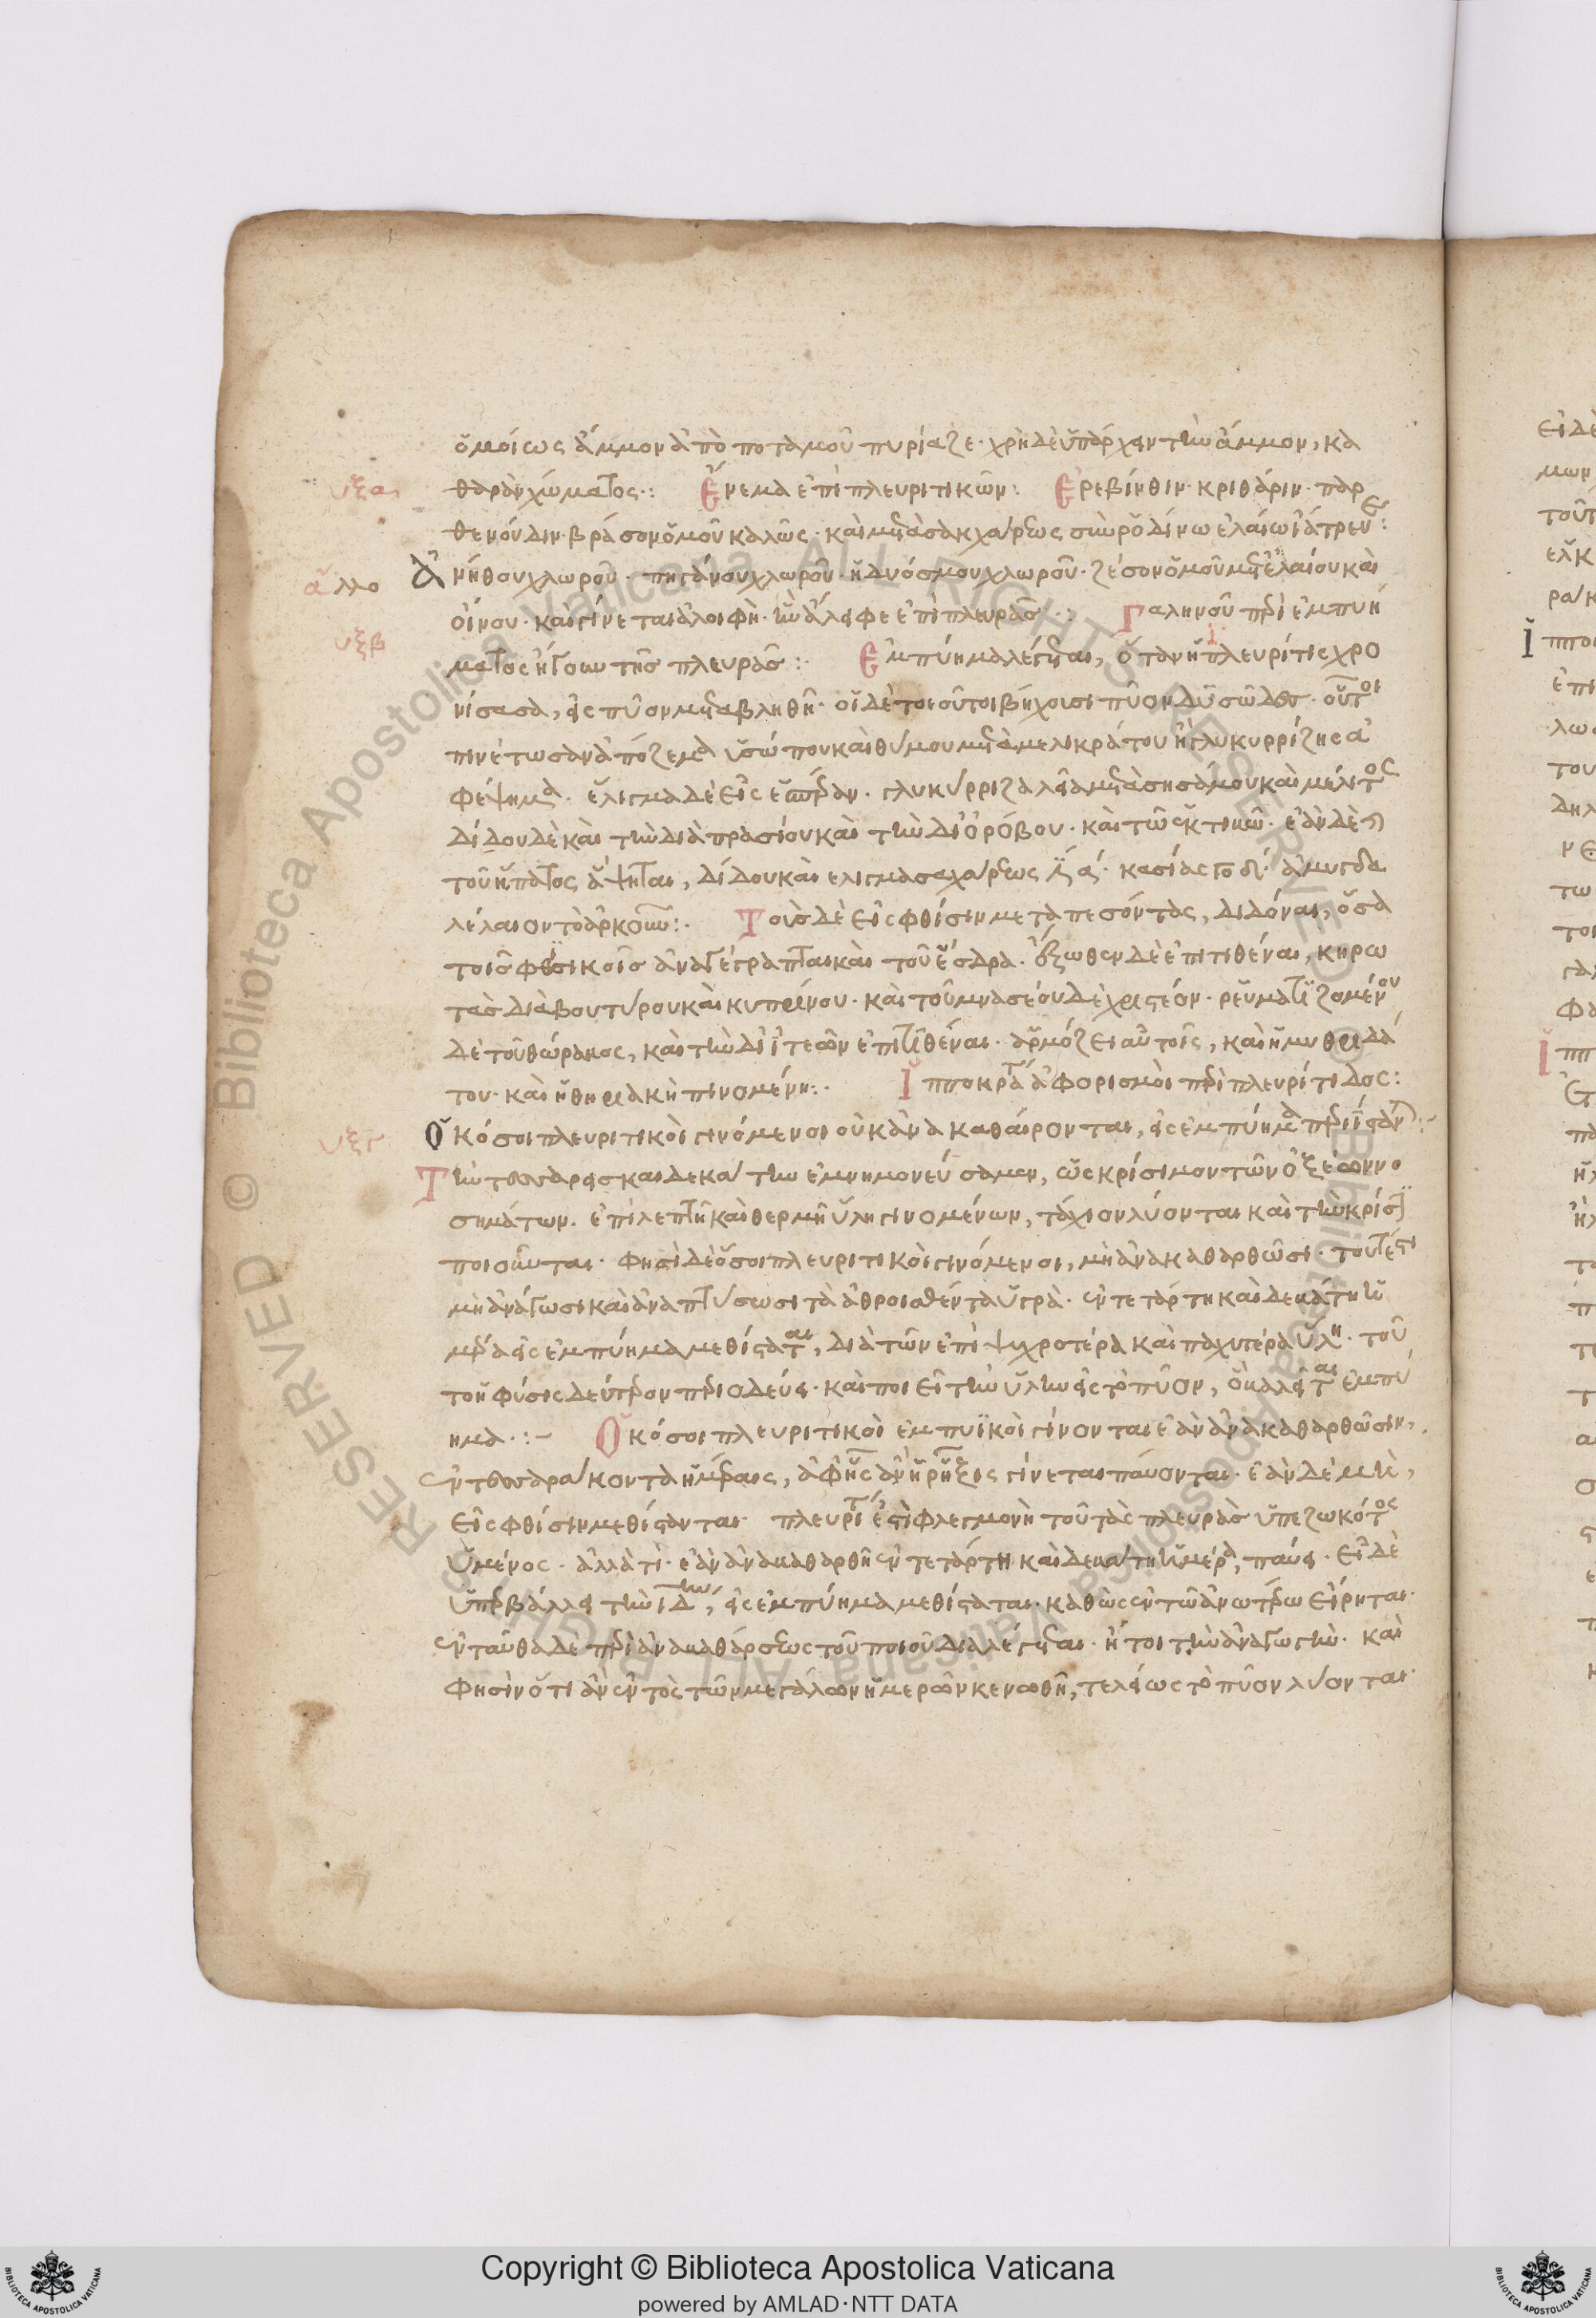 ὁμοίως ἄμμον ἀπὸ ποταμοῦ πυρίαζε· χρὴ δὲ ὑπάρχειν τὴν ἄμμον, κα
υξα θαρὰν χώματος: Ἔνεμα ἐπὶ πλευριτικῶν: Ἐρεβίνθιν· κριθάριν· παρ
θενούδιν· βράσον ὁμοῦ καλῶς· καὶ μετὰ σάκχαρεως σὺν ῥοδίνω ἐλαίω ἰάτρευε:
ἄλλο Ἀνήθου χλωροῦ· πηγάνου χλωροῦ· ἡδυόσμου χλωροῦ· ζέσον ὁμοῦ μετὰ ἐλαίου καὶ
οἴνου· καὶ γίνεται ἀλοιφὴ· ἣν ἄλειφε ἐπὶ πλευρᾶς: Γαληνοῦ περὶ ἐμπυή
υξβ ματος ἤγουν τῆς πλευρᾶς: Ἐμπύημα λέγεται, ὅταν ἡ πλευρίτις χρο
νίσασα, εἰς πῦον μεταβληθῆ· οἱ δὲ τοιοῦτοι βήχουσι πῦον δυσῶδες· οὗτοι
πινέτωσαν ἀπόζεμα ὑσώπου καὶ θύμου μετὰ μελικράτου ἢ γλυκυρρίζης ἀ
φέψημα· ἔλιγμα δὲ εἰς ἑσπέραν· γλυκύρριζα λεία μετὰ σησάμου καὶ μέλιτος
δίδου δὲ καὶ τὴν διὰ πρασίου καὶ τὴν δι' ὀρόβου· καὶ τῶ ἑκτικῶ· ἐὰν δὲ
τοῦ ἥπατος ἅψηται, δίδου καὶ ελιγμα σαχάρεως κασίας ἀμυγδα
λέλαιον τὸ ἀρκοῦν: Τοὺς δὲ εἰς φθίσιν μεταπεσόντας, διδόναι, ὅσα
τοῖς φθισικοῖς ἀναγέγραπται καὶ τοῦ ἔσδρα· ἔξωθεν δὲ ἐπιτιθέναι, κηρω
τὰς διὰ βουτύρου καὶ κυπρίνου· καὶ τοῦ μνασέου δὲ χρηστέον· ῥευματιζομένου
δὲ τοῦ θώρακος, καὶ τὴν δι' ἰτεῶν ἐπιτιθέναι· ἁρμόζει αὐτοῖς, καὶ ἡ μυθριδά
του· καὶ ἡ θηριακὴ πινομένη: Ἱπποκράτους ἀφορισμὸι περὶ πλευρίτιδος:
υξγ Ὁκόσοι πλευριτικὸι γινόμενοι οὐκ ἀνακαθαίρονται, εἰς ἐμπύημα περιίσταν
Τὴν τεσσαρεσκαιδεκάτην ἐμνημονεύσαμεν, ὡς κρίσιμον τῶν ὀξέων νο
σημάτων. ἐπὶ λεπτῆ καὶ θερμῆ ὕλη γινομένων, τάχιον λύονται καὶ τὴν κρίσιν
ποιοῦνται· φησὶ δὲ ὅσοι πλευριτικὸι γινόμενοι, μὴ ἀνακαθαρθῶσι· τουτέστι
μὴ ἀνάγωσι καὶ ἀναπτύσωσι τὰ ἀθροισθέντα ὑγρὰ· ἐν τετάρτη καὶ δεκάτη ἡ
μέρα εἰς ἐμπύημα μεθίσταται, διὰ τῶν ἐπὶ ψυχροτέρα καὶ παχυτέρα ὕλη· τοῦ
το ἡ φύσις δεύτερον περιοδεύει· καὶ ποιεῖ τὴν ὕλην εἰς τὸ πῦον, ὃ καλεῖται ἐμπύ
ημα: Ὁκόσοι πλευριτικοὶ ἐμπυϊκοὶ γίνονται ἐὰν ἀνακαθαρθῶσιν,
ἐν τεσσαράκοντα ἡμέραις, ἀφ' ἧς ἂν ἡ ῥῆξις γίνεται παύονται· ἐὰν δὲ μὴ,
εἰς φθίσιν μεθίστανται· πλευρῖτις ἐστὶ φλεγμονὴ τοῦ τὰς πλευρὰς ὑπεζωκότος
ὑμένος· ἀλλὰ τί· ἐὰν ἀνακαθαρθῆ ἐν τετάρτη καὶ δεκάτη ἡμέρα, παύει· εἰ δὲ
ὑπερβάλλει τὴν ιδ ην, εἰς ἐμπύημα μεθίσταται· καθὼς ἐν τῶ ἀνωτέρω εἴρηται·
ἐνταῦθα δὲ περὶ ἀνακαθάρσεως τοῦ ποιοῦ διαλέγεται· ἤτοι τὴν ἀναγωγὴν· καὶ
φησὶν ὅτι ἂν ἐντὸς τῶν μεγάλων ἡμερῶν κενωθῆ, τελείως τὸ πῦον λύονται·
Copyright © Biblioteca Apostolica Vaticana
powered by AMLAD·NTT DATA